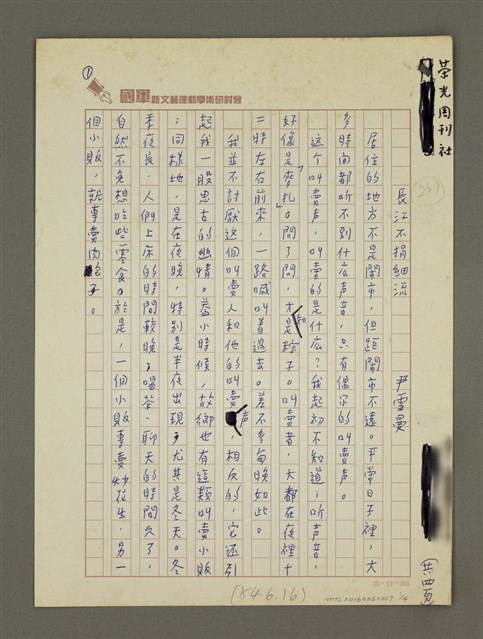 榮光周刊社
(共四頁)
①
國軍新文藝運動學術研討會
長江不捐細流　尹雪曼
居住的地方不是鬧市，但距鬧市不遠。平常日子裡，大
多時間都听不到什広声音，只有偶尔的叫賣声。
这个叫賣声，叫賣的是什広？我起初不知道，听声音，
好像是「麥扎」。問了問，才知是粽子。叫賣者，大都在夜裡十
二時左右前來，一路喊叫着過去。差不多每晚如此。
我並不討厭这個叫賣人和他的叫賣声，相反的，它还引
起我一股思古的幽情。蓋小時候，故鄉也有這類叫賣小販
；同樣地，是在夜晚，特別是半夜出現，尤其是冬天。冬
季夜長，人們上床的時間較晚；喝茶、聊天的時間久了，
自然不免想吃些零食。於是，一個小販專賣炒花生，另一
個小販，就專賣肉包子。
(84.6.16)
1/4